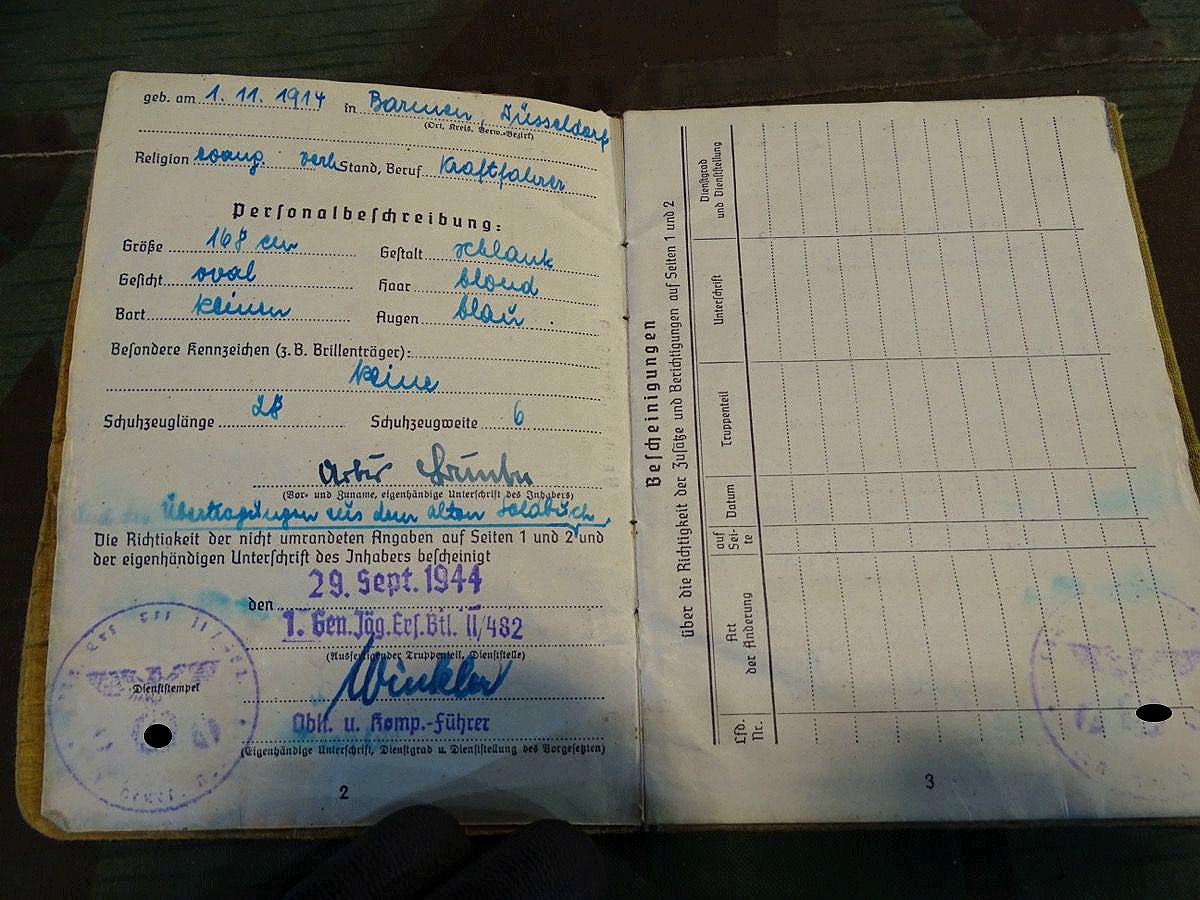 geb. am 1. 11. 1914 in Barmen, Düsseldorf
(Ort, Kreis, Verw.-Bezirk)
Religion evang. verh. Stand, Beruf Kraftfahrer
Personalbeschreibung:
Größe 168 cm Gestalt schlank
Gesicht oval Haar blond
Bart keinen Augen blau
Besondere Kennzeichen (z. B. Brillenträger):
keine
Schuhzeuglänge 28 Schuhzeugweite 6
(Vor- und Zuname, eigenhändige Unterschrift des Inhabers)
Übertragungen aus dem alten Soldbuch
Die Richtigkeit der nicht umrandeten Angaben auf Seiten 1 und 2 und
der eigenhändigen Unterschrift des Inhabers bescheinigt
den 29. Sept. 1944
1. Gen.Jäg.Ers.Btl. II/482
(Ausfertigender Truppenteil, Dienststelle)
Winkler
Dienststempel
Oblt. u. Komp.-Führer
(Eigenhändige Unterschrift, Dienstgrad u. Dienststellung des Vorgesetzten)
2
Bescheinigungen
über die Richtigkeit der Zusätze und Berichtigungen auf Seiten 1 und 2
Lfd. Nr.
Art der Änderung
auf Sei-te
Datum
Truppenteil
Unterschrift
Dienstgrad und Dienststellung
3